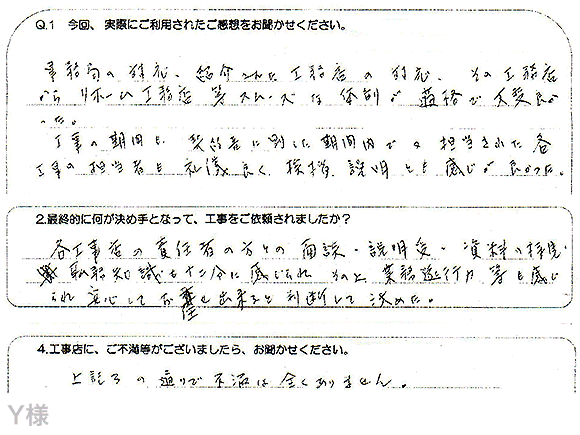 Q.1 今回、実際にご利用されたご感想をお聞かせください。
事務局の対応、紹介された工務店の対応、その工務店
からリホーム工務店等スムーズな体制が適格で大変良か
った。
工事の期間も、契約書に則した期間内で 担当された各
工事の担当者も礼儀良く、挨拶、説明とも感じが良かった。
2.最終的に何が決め手となって、工事をご依頼されましたか？
各工事店の責任者の方との面談・説明 資料 拝見
知識も十二分に感じられ 業務遂行力等も感じ
られ安心して 出来ると判断して決めた。
4.工事店に、ご不満等がございましたら、お聞かせください。
上記3の通りで不満は全くありません。
Y様